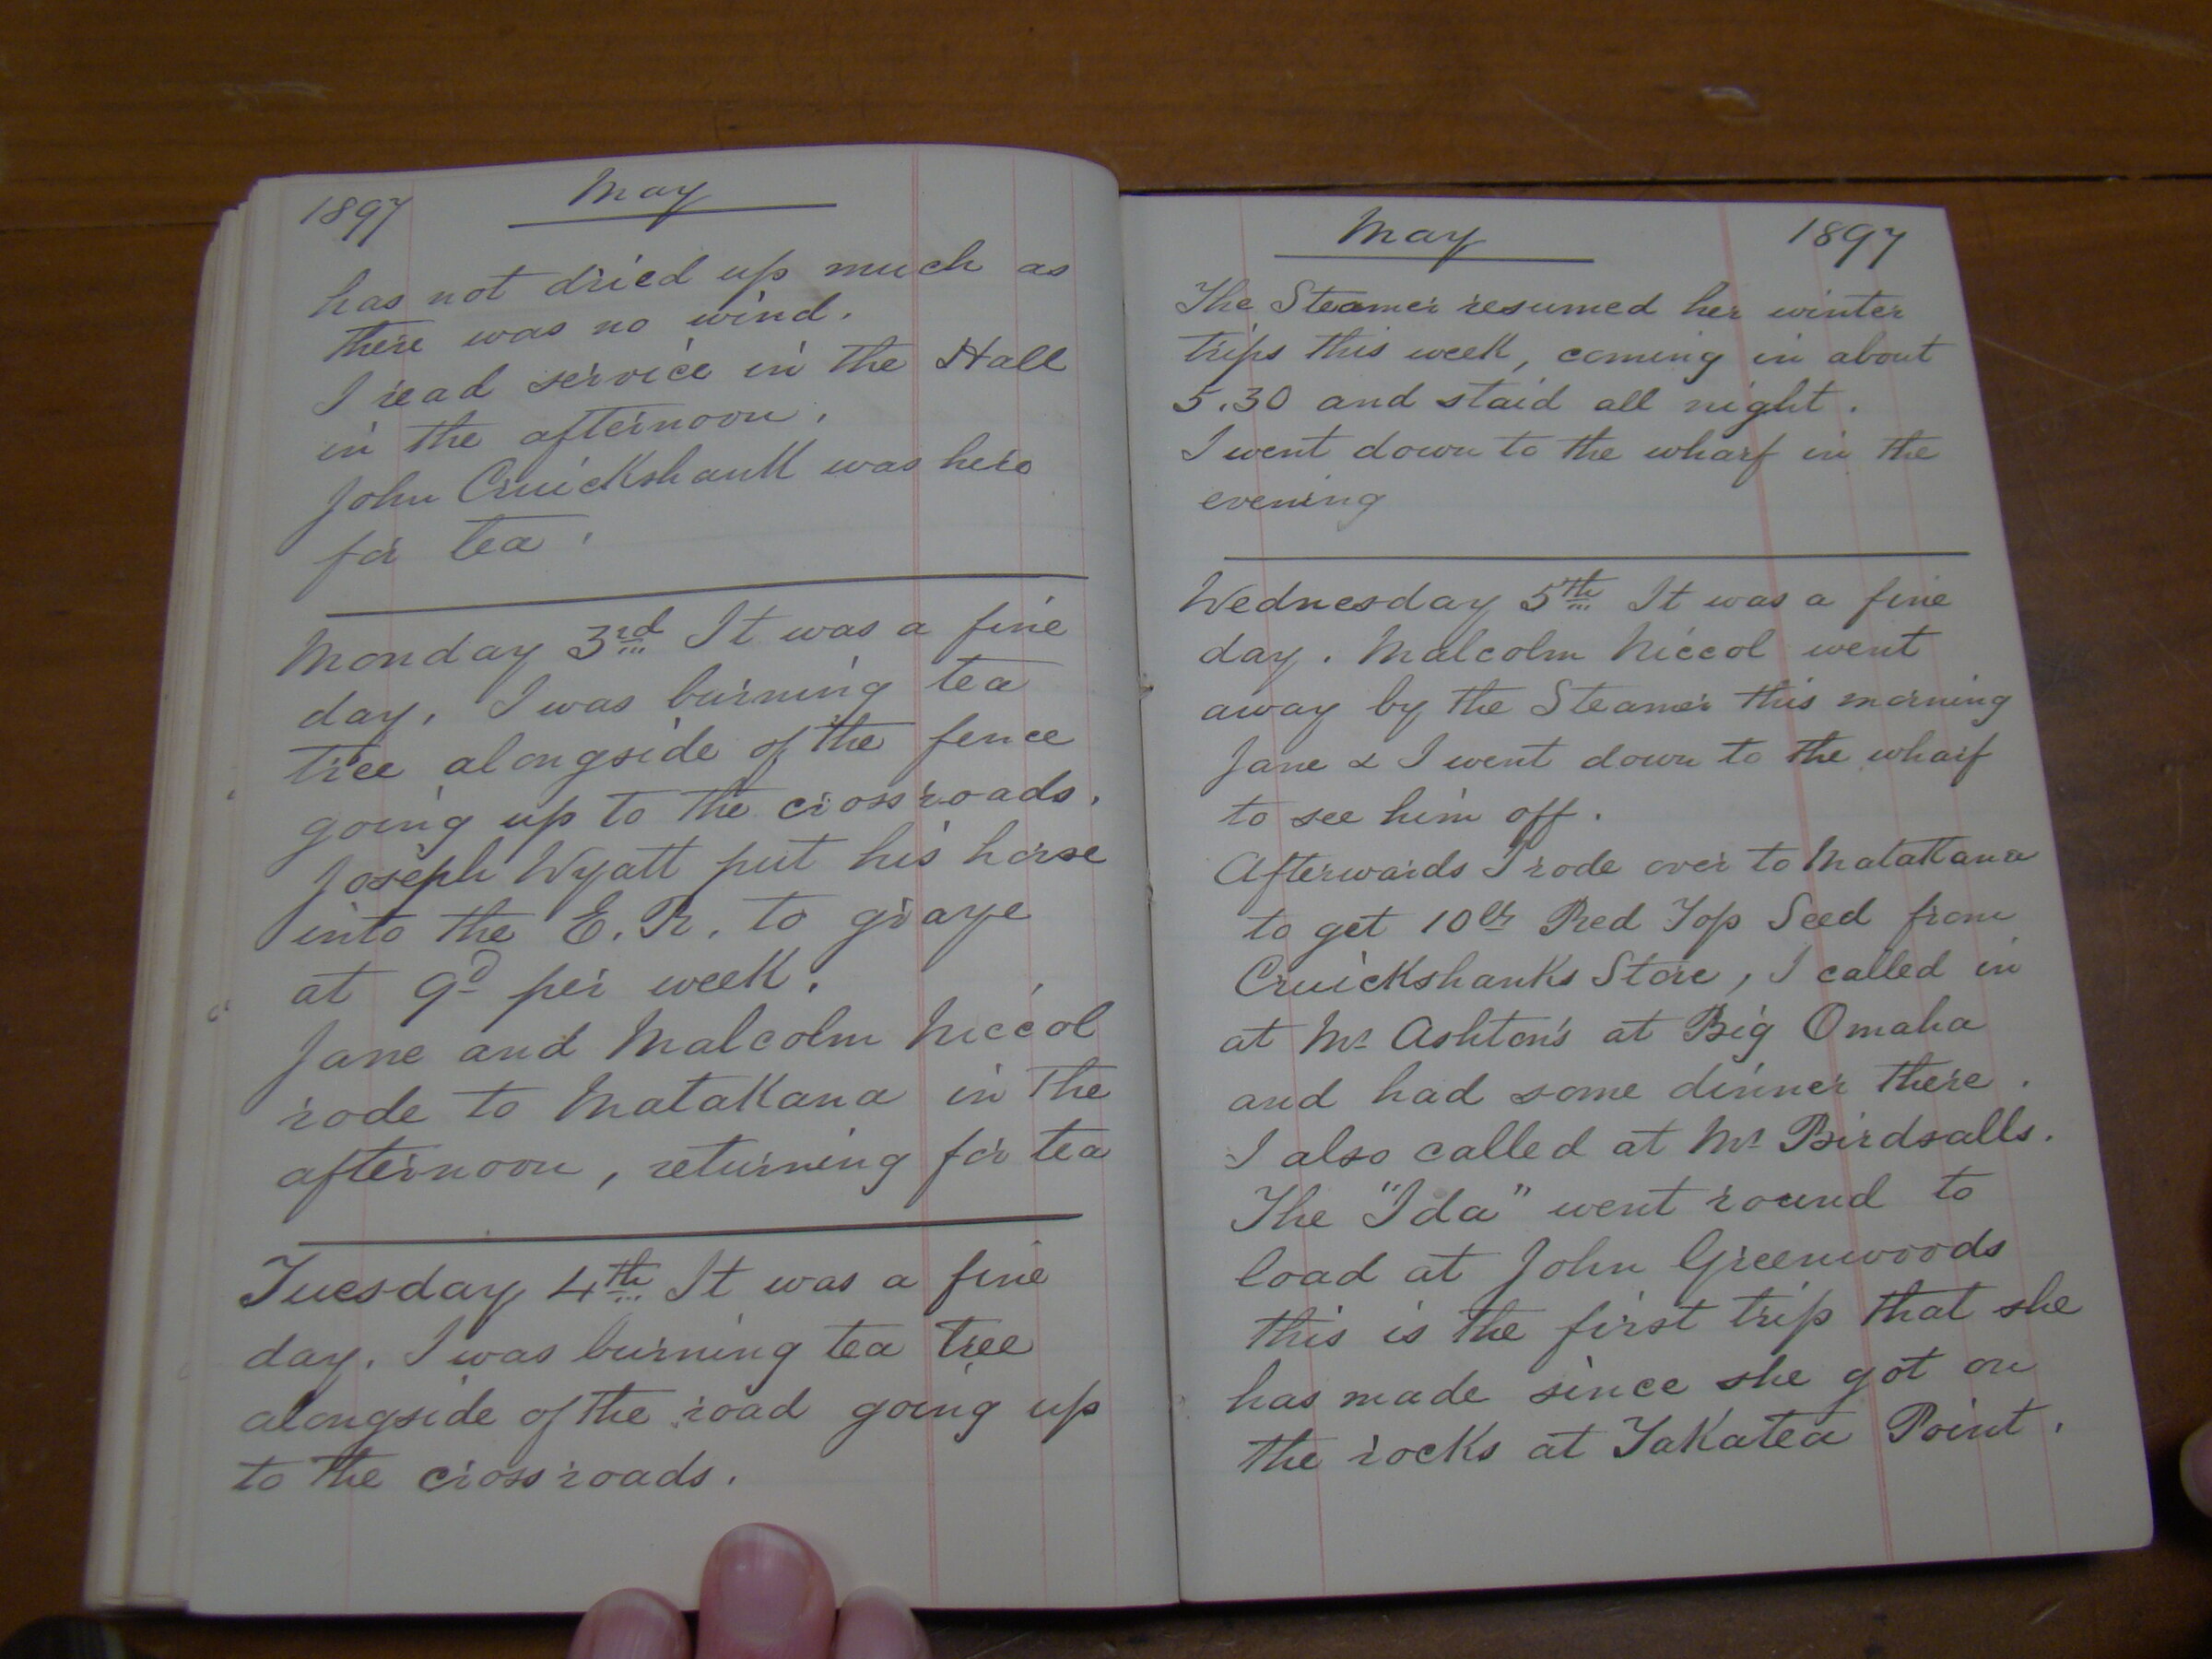 1897 May
has not dried up much as
there was no wind.
I read service in the Hall
in the afternoon.
John Cruickshank was here
for tea.
Monday 3rd It was a fine
day. I was burning tea
tree alongside of the fence
going up to the crossroads.
Joseph Wyatt put his horse
into the E. R. to graze
at 9d per week.
Jane and Malcolm Niccol
rode to Matakana in the
afternoon, returning for tea
Tuesday 4th It was a fine
day. I was burning tea tree
alongside of the road going up
to the crossroads.
May 1897
The Steamer resumed her winter
trips this week, coming in about
5.30 and staid all night.
I went down to the wharf in the
evening
Wednesday 5th It was a fine
day. Malcolm Niccol went
away by the Steamer this morning
Jane & I went down to the wharf
to see him off.
Afterwards I rode over to Matakana
to get 10lb Red Top Seed from
Cruickshanks Store, I called in
at Mr Ashton's at Big Omaha
and had some dinner there.
I also called at Mr Birdsalls.
The "Ida" went round to
load at John Greenwoods
this is the first trip that she
has made since she got on
the rocks at Takatea Point.